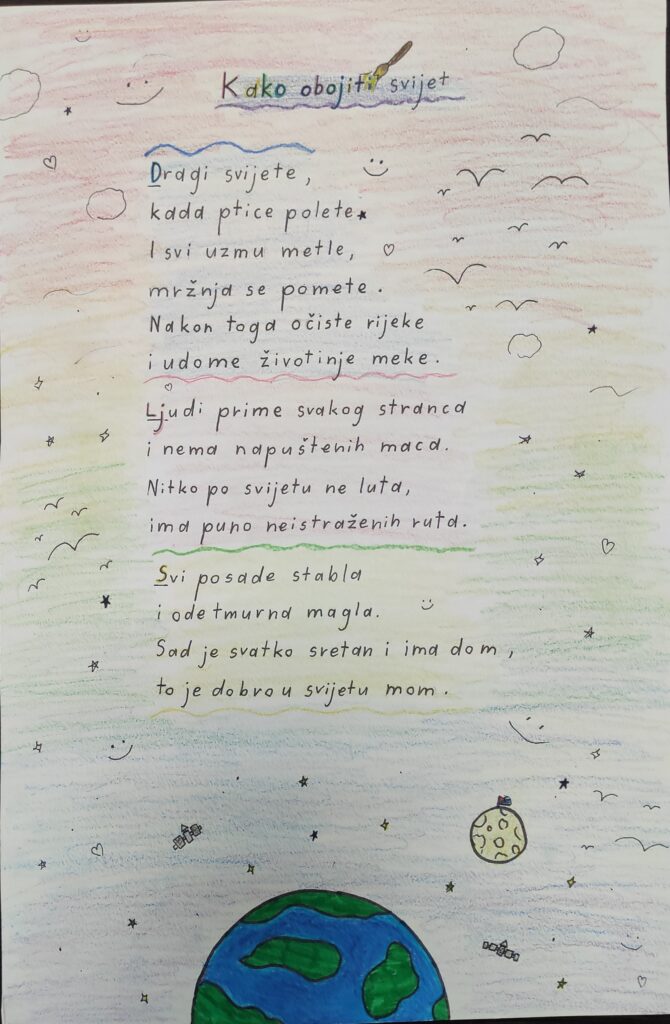 Kako obojiti svijet
Dragi svijete,
kada ptice polete
I svi uzmu metle,
mržnja se pomete.
Nakon toga očiste rijeke
i udome životinje meke.
Ljudi prime svakog stranca
i nema napuštenih maca.
Nitko po svijetu ne luta,
ima puno neistraženih ruta.
Svi posade stabla
i ode tmurna magla.
Sad je svatko sretan i ima dom,
to je dobro u svijetu mom.